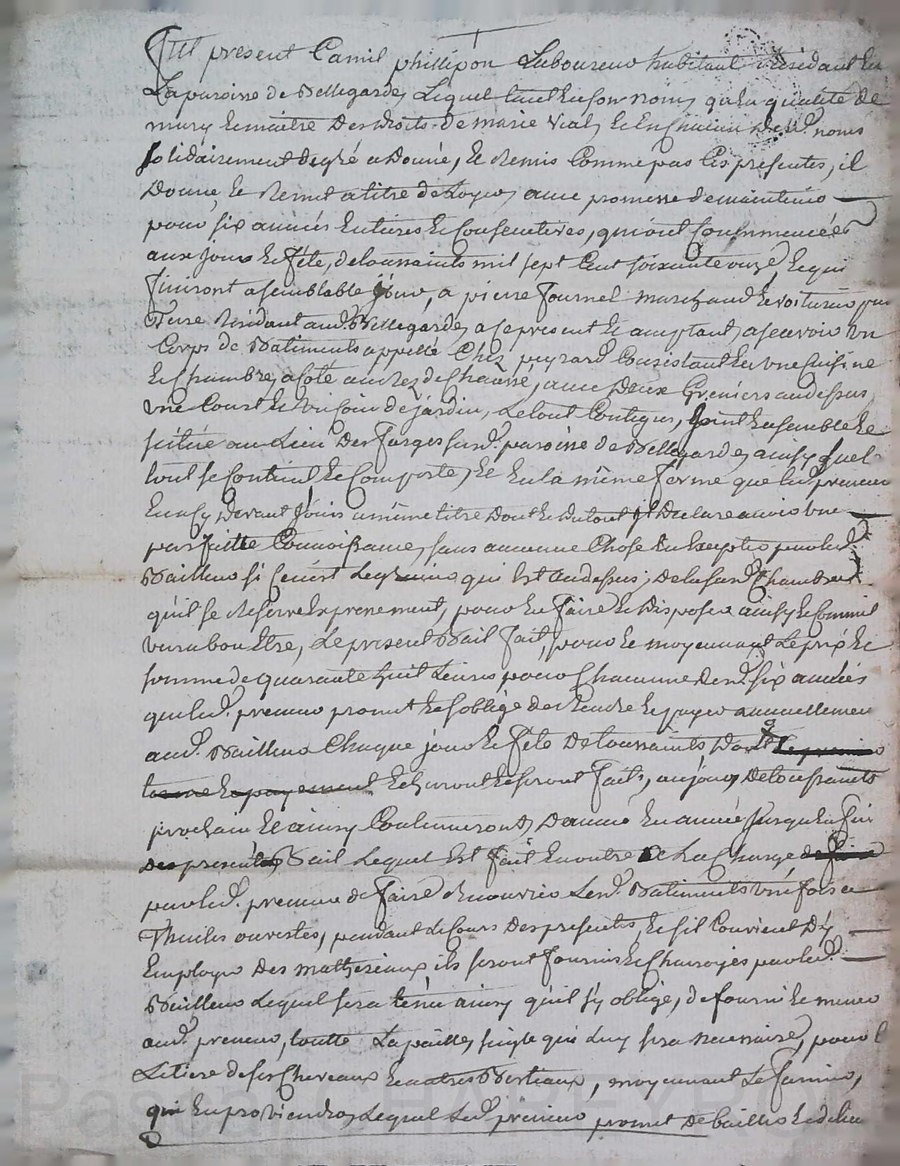 fut présent Camil phillipon Laboureur habitant & Résidant En
La paroisse de Bellegarde, Lequel tant En son nom, qu'En qualité de
mary Et maître Des droits de marie Vial, Et En Chacun Desd. noms
solidairement de gré a Donné, Et Remis Comme par Ces presentes, il
Donne, Et Remet a titre de Loyer, avec promesse de maintenir
pour six années Entieres Et Consecutives, qui ont Commencées
aux jour Et fête, de toussaints mil sept Cent soixante onze, Et qui
finiront a semblable jour, a pierre fournel marchand Et voiturier par
Terre Résidant aud. Bellegarde, a ce present Et acceptant, a scavoir Un
Corps de Batiments appellé Chez peyrard Consistant En Une Cuisine
Et Chambre, a Coté au Rez de Chaussé, avec Deux Greniers au dessus,
Une Court Et Un Coin de jardin, Le tout Contigus, joint Ensemble Et
scitué au Lieu Des farges susd. paroisse de Bellegarde, ainsy quel
tout se Contient Et Comporte, Et En la même forme que led. preneur
En a Cy Devant joüis a même titre Dont Et Du tout il Declare avoir Une
parfaitte Connoissance, sans aucune Chose En Excepter par led.
Bailleur si Ce n'est Le grenier qui Est au dessus, de la susd. Chambre
qu'il se Réserve Expressement, pour En faire Et Disposer ainsy Et Comme il
verra bon Etre, Le present Bail fait, pour Et moyennant Le prix Et
somme de quarante huit Livres pour Chacune Desd. six années
que led. preneur promet Et s'oblige de Rendre Et payer annuellement
aud. Bailleur Chaque jour Et fête De toussaints Dont Le premier
terme Et payement Echeront Et seront fait, au jour De toussaints
prochain Et ainsy Continueront, D'année En année jusqu'En fin
Des presentes Bail Lequel Est fait En outre De La Charge de faire
par led. preneur de faire Recouvrir Lesd. Batiments Une fois a
Thuiles ouvertes, pendant Le Cours Des presentes, Et s'il Convient D'y
Employer Des mathereaux ils seront fournis Et Charroyés par led.
Bailleur Lequel sera tenu ainsy qu'il s'y oblige, de fournir Et mener
aud. preneur, toutte La paille, seigle qui Luy sera necessaire, pour la
Litiere de ses Chevaux Et autres Bestiaux, moyennant Le fumier,
qui En proviendra, Lequel Led. preneur promet De bailler Et delivrer